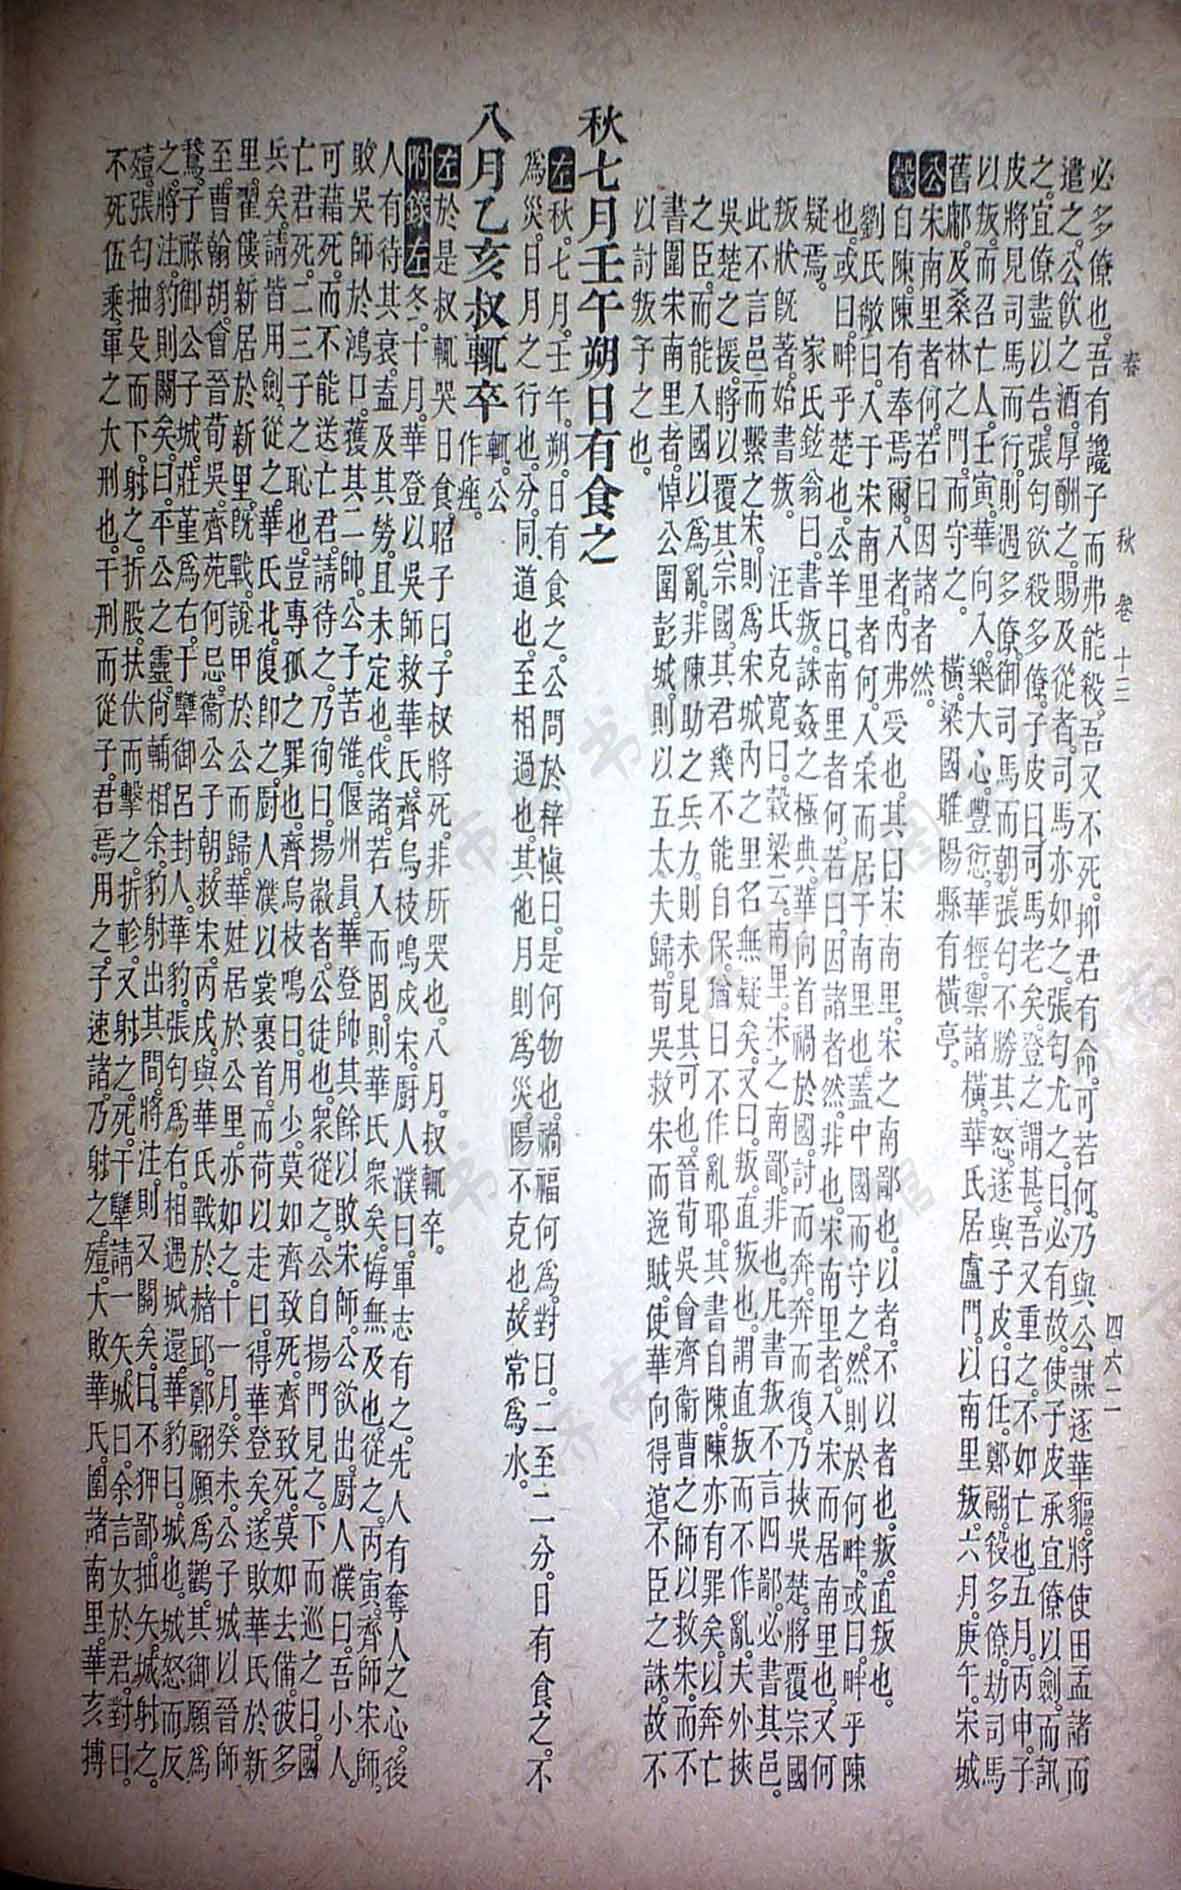 春 秋 卷十三 四六二
必多僚也吾有讒子而弗能殺吾又不死抑君有命可若何乃與公謀逐華貙將使田孟諸而
遣之公飲之酒厚酬之賜及從者司馬亦如之張匄尤之曰必有故使子皮承宜僚以劍而訊
之宜僚盡以告張匄欲殺多僚子皮曰司馬老矣登之謂甚吾又重之不如亡也五月丙申子
皮將見司馬而行則遇多僚御司馬而朝張匄不勝其怒遂與子皮臼任鄭翩殺多僚劫司馬
以叛而召亡人壬寅華向入樂大心豐愆華牼禦諸橫華氏居盧門以南里叛六月庚午宋城
舊鄘及桑林之門而守之 橫梁國睢陽縣有橫亭
公宋南里者何若曰因諸者然
穀自陳陳有奉焉爾入者內弗受也其曰宋南里宋之南鄙也以者不以者也叛直叛也
劉氏敞曰入于宋南里者何入宋而居于南里也蓋中國而守之然則於何畔或曰畔乎陳
也或曰畔乎楚也公羊曰南里者何若曰因諸者然非也宋南里者入宋而居南里也又何
疑焉 家氏鉉翁曰書叛誅姦之極典華向首禍於國討而奔奔而復乃挾吳楚將覆宗國
叛狀旣著始書叛 汪氏克寬曰穀梁云南里宋之南鄙非也凡書叛不言四鄙必書其邑
此不言邑而繫之宋則爲宋城內之里名無疑矣又曰叛直叛也謂直叛而不作亂夫外挾
吳楚之援將以覆其宗國其君幾不能自保猶曰不作亂耶其書自陳陳亦有罪矣以奔亡
之臣而能入國以爲亂非陳助之兵力則未見其可也晉荀吳會齊衞曹之師以救宋而不
書圍宋南里者悼公圍彭城則以五大夫歸荀吳救宋而逸賊使華向得逭不臣之誅故不
以討叛予之也
秋七月壬午朔日有食之
左秋七月壬午朔日有食之公問於梓愼曰是何物也禍福何爲對曰二至二分日有食之不
爲災日月之行也分同道也至相過也其他月則爲災陽不克也故常爲水
八月乙亥叔輒卒 輒公作痤
左於是叔輒哭日食昭子曰子叔將死非所哭也八月叔輒卒
附錄左冬十月華登以吳師救華氏齊烏枝鳴戍宋厨人濮曰軍志有之先人有奪人之心後
人有待其衰盍及其勞且未定也伐諸若入而固則華氏衆矣悔無及也從之丙寅齊師宋師
敗吳師於鴻口獲其二帥公子苦雂偃州員華登帥其餘以敗宋師公欲出厨人濮曰吾小人
可藉死而不能送亡君請待之乃徇曰揚徽者公徒也衆從之公自揚門見之下而巡之曰國
亡君死二三子之恥也豈專孤之罪也齊烏枝鳴曰用少莫如齊致死齊致死莫如去備彼多
兵矣請皆用劍從之華氏北復卽之厨人濮以裳裹首而荷以走曰得華登矣遂敗華氏於新
里翟僂新居於新里旣戰說甲於公而歸華妵居於公里亦如之十一月癸未公子城以晉師
至曹翰胡會晉荀吳齊苑何忌衞公子朝救宋丙戌與華氏戰於赭邱鄭翩願爲鸛其御願爲
鵞子祿御公子城莊堇爲右于犫御呂封人華豹張匄爲右相遇城還華豹曰城也城怒而反
之將注豹則關矣曰平公之靈尙輔相余豹射出其間將注則又關矣曰不狎鄙抽矢城射之
殪張匄抽殳而下射之折股扶伏而擊之折軫又射之死于犫請一矢城曰余言女於君對曰
不死伍乘軍之大刑也干刑而從子君焉用之子速諸乃射之殪大敗華氏圍諸南里華亥搏